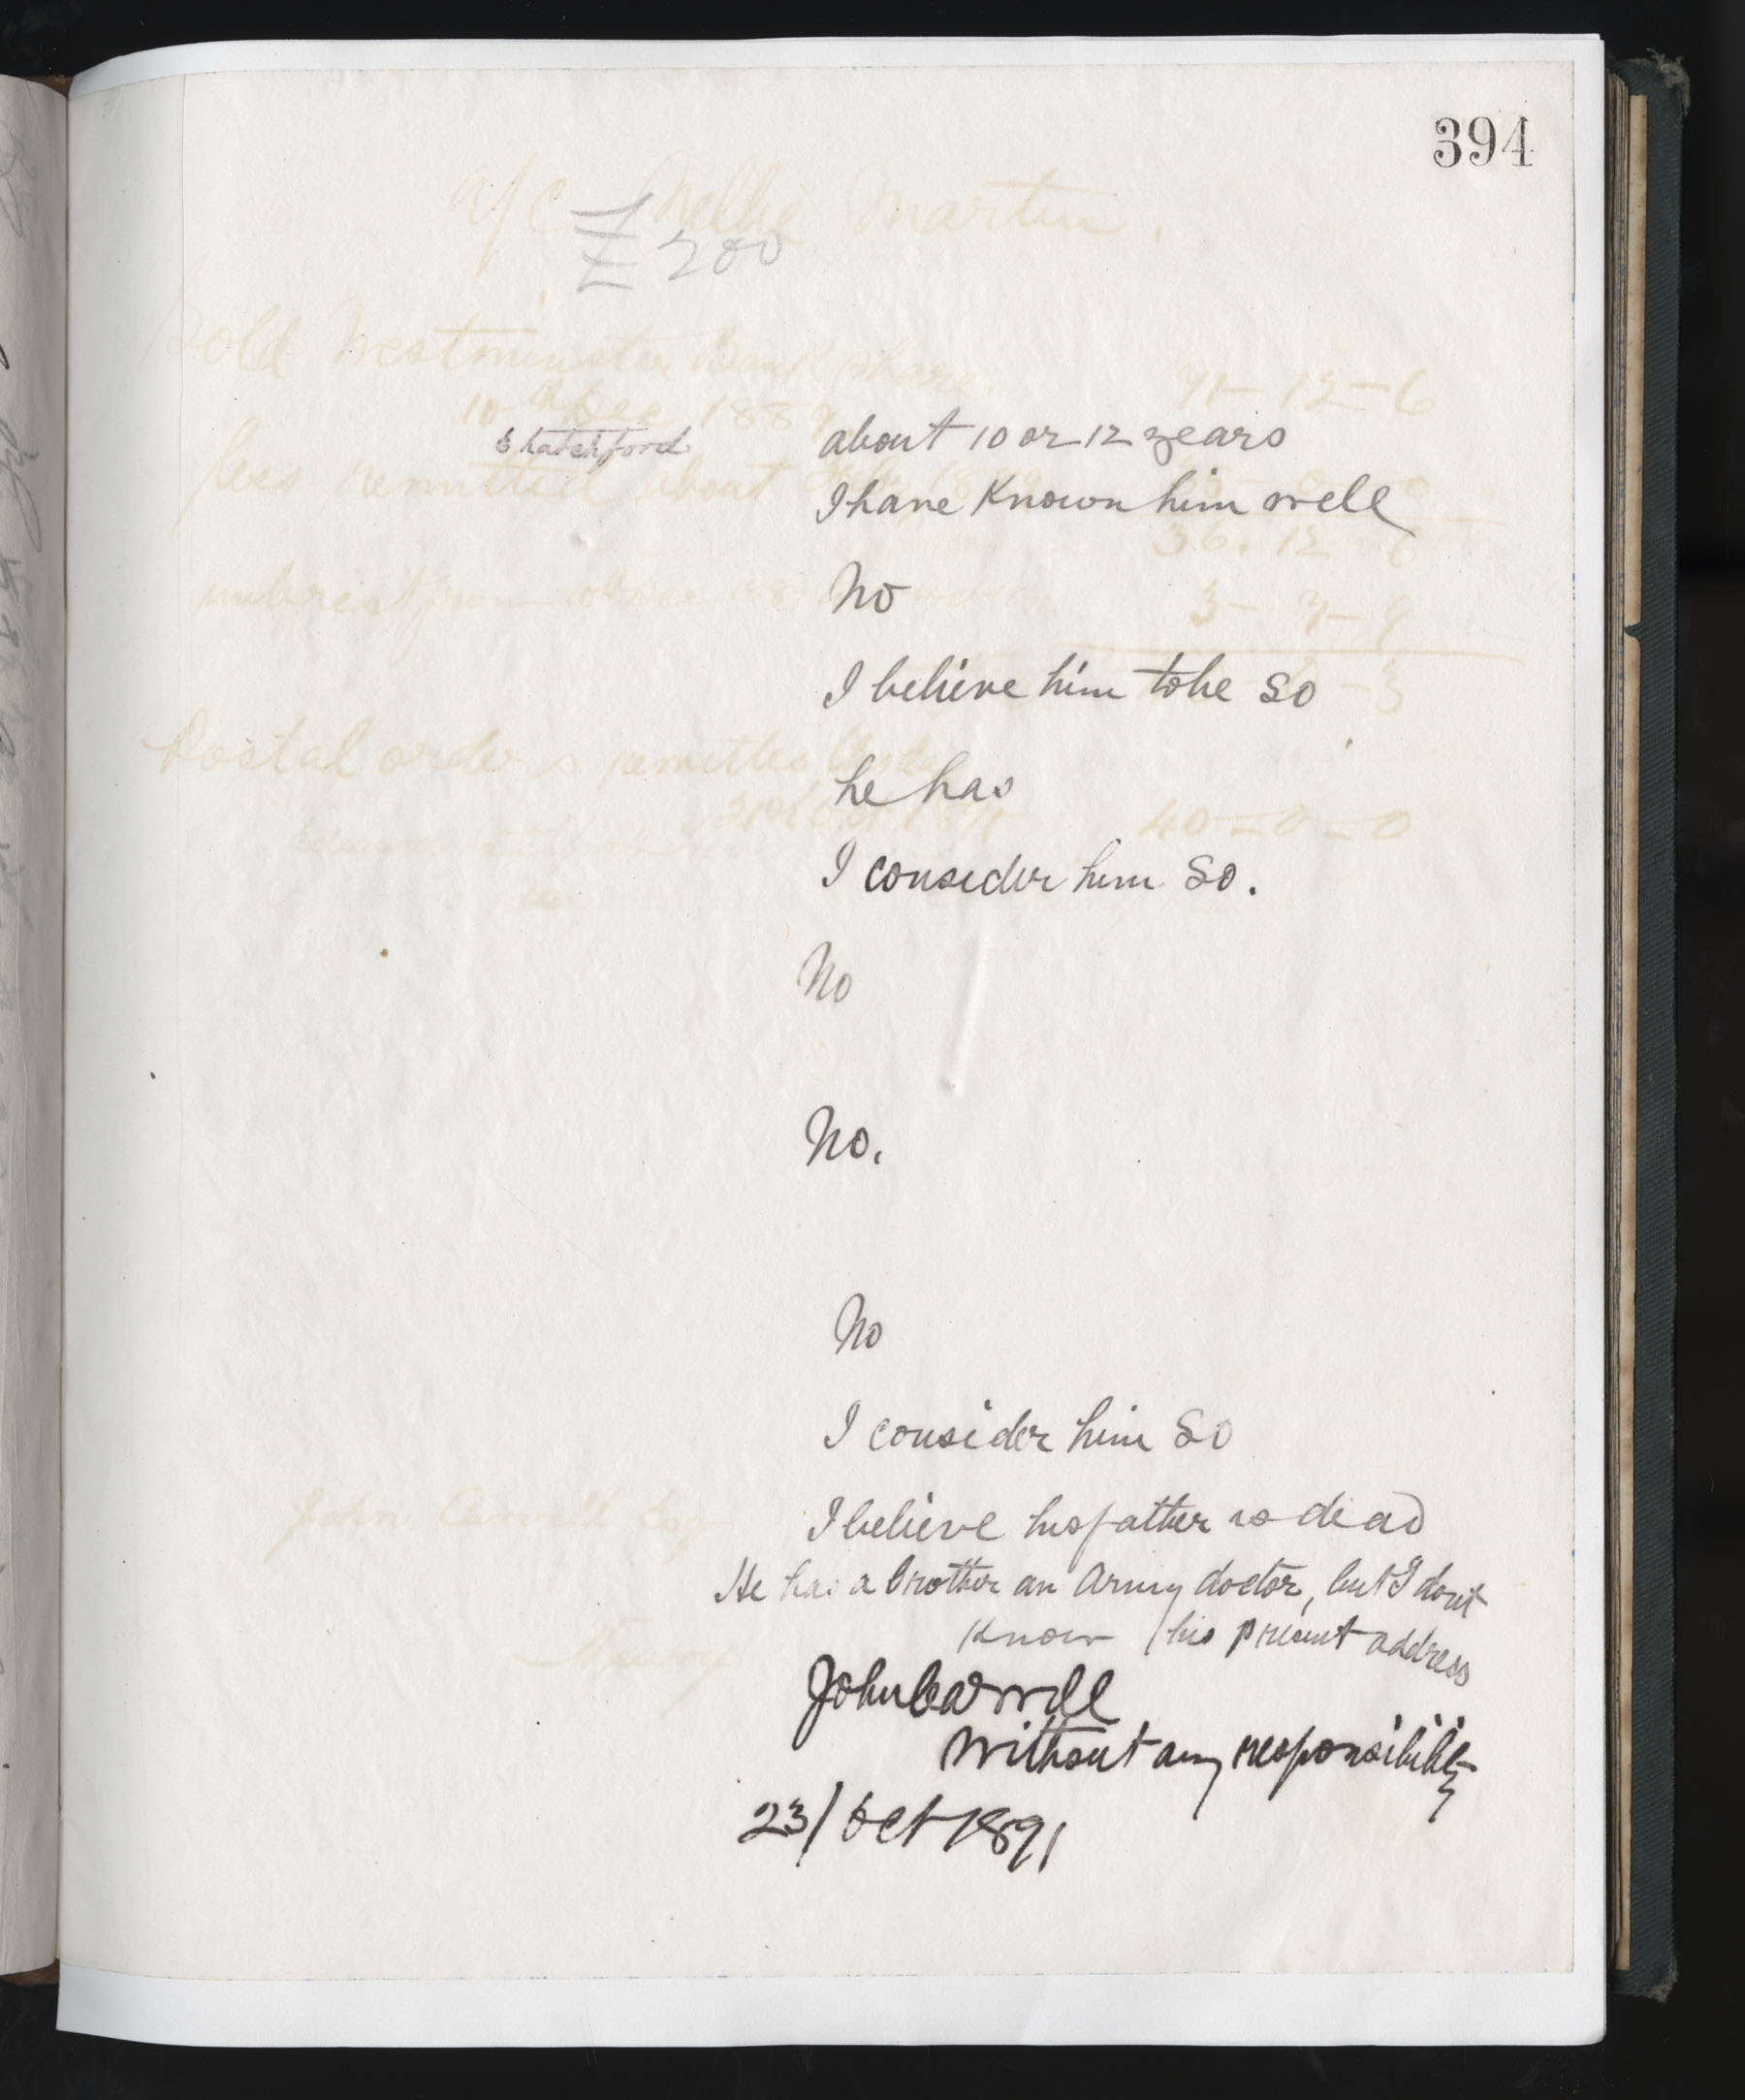 394
a/c Nellie Martin.
£200
Sold Westminster Bank share 71-12-6
10 Dec 1889
Shatchford about 10 or 12 years
less remitted about
I have Known him well
36. 12 6
No
interest from 3-7-9
I believe him to be so
Postal orders remitted
he has
31st Oct 1891 40-0-0
I consider him So.
No
No.
No
I consider him So
John Carroll Esq
I believe his father is dead
He has a brother an Army doctor, but I dont
Know his present address
John Carroll
Without any responsibility
23/Oct 1891